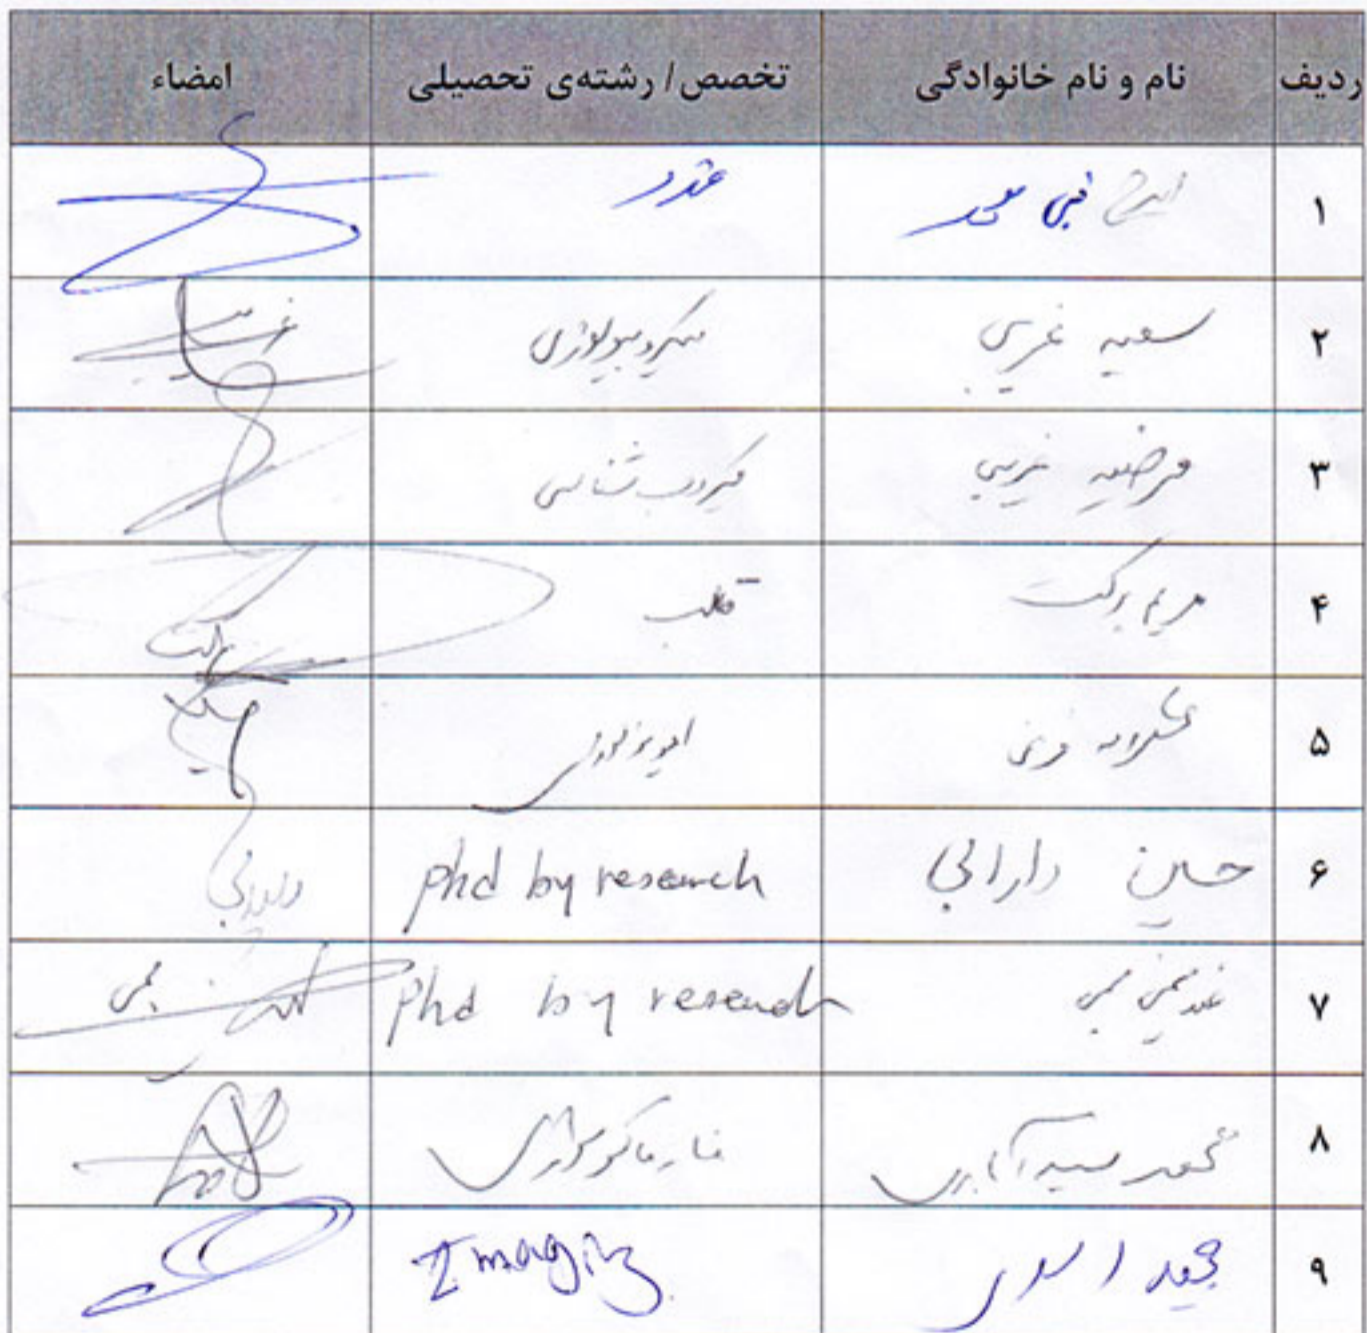 ردیف نام و نام خانوادگی تخصص / رشته‌ی تحصیلی امضاء
۱ ایرج نبی پور غدد
۲ سمیه غریبی میکروبیولوژی
۳ مرضیه غریبی میکروب شناسی
۴ مریم برکت قلب
۵ ایمونولوژی
۶ حسین دارابی phd by research
۷ phd by research
۸ محمد سید آبادی فارماکولوژی
۹ مجید اسدی Imaging